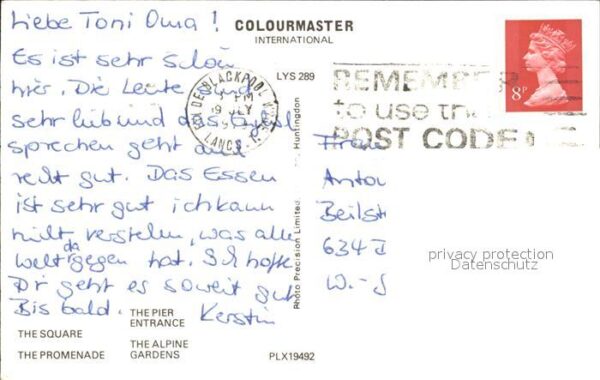 Liebe Toni Oma!
Es ist sehr schön
hier. Die Leute sind
sehr lieb und das
sprechen geht auch
recht gut. Das Essen
ist sehr gut ich kann
nicht verstehen, was alle
Welt da gegen hat. Ich hoffe
Dir geht es soweit gut
Bis bald. Kerstin
COLOURMASTER
INTERNATIONAL
LYS 289
BLACKPOOL
PM
LANCS
REMEMBER
to use the
POST CODE
8P
Photo Precision Limited, Huntingdon
Frau
Anton
Beilst
634
W.-
privacy protection
Datenschutz
THE SQUARE
THE PROMENADE
THE PIER
ENTRANCE
THE ALPINE
GARDENS
PLX19492